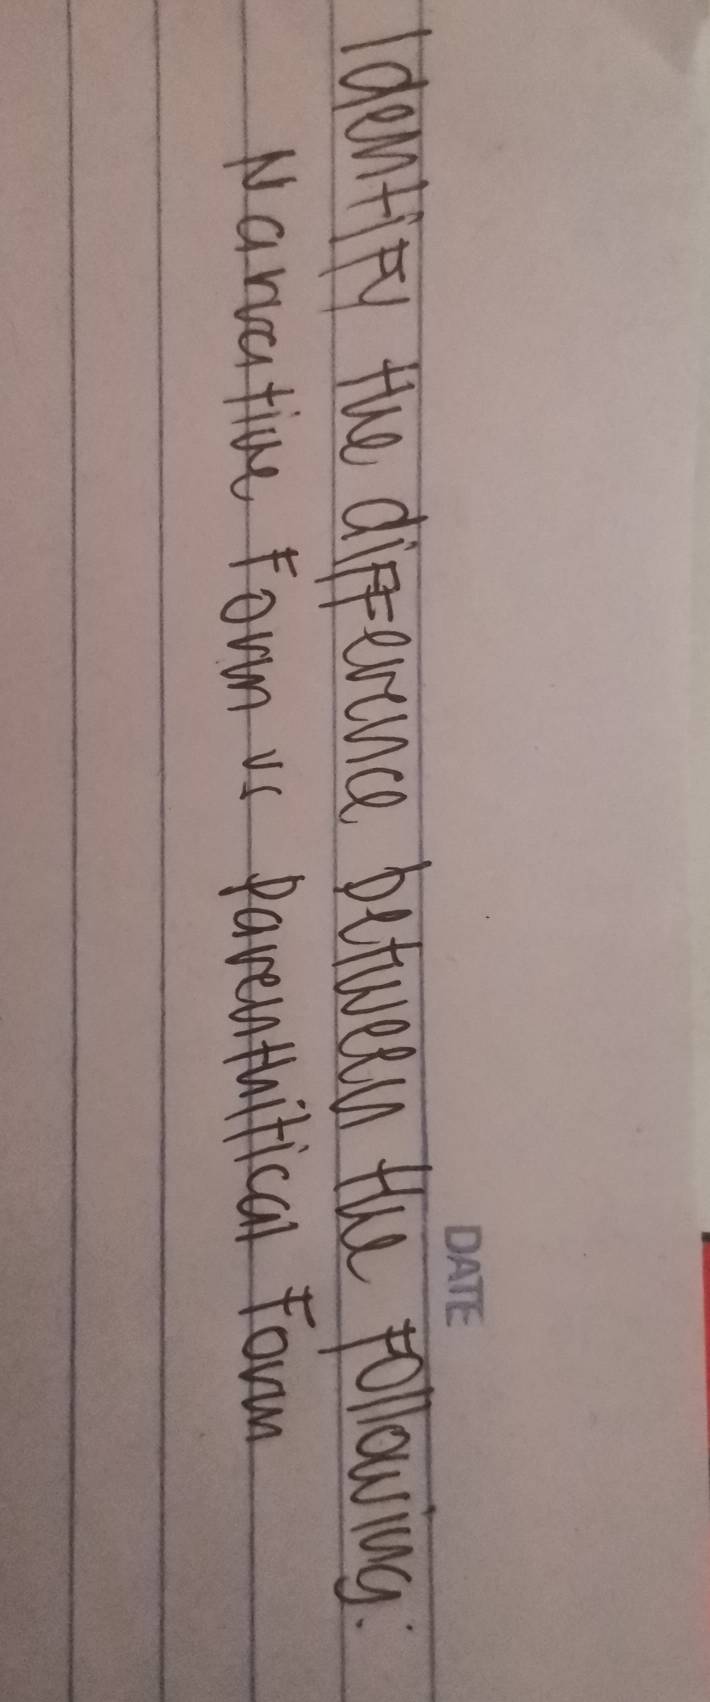 DATE
Identify the difference between the Following:
Narrative Form vs Parenthitical Form